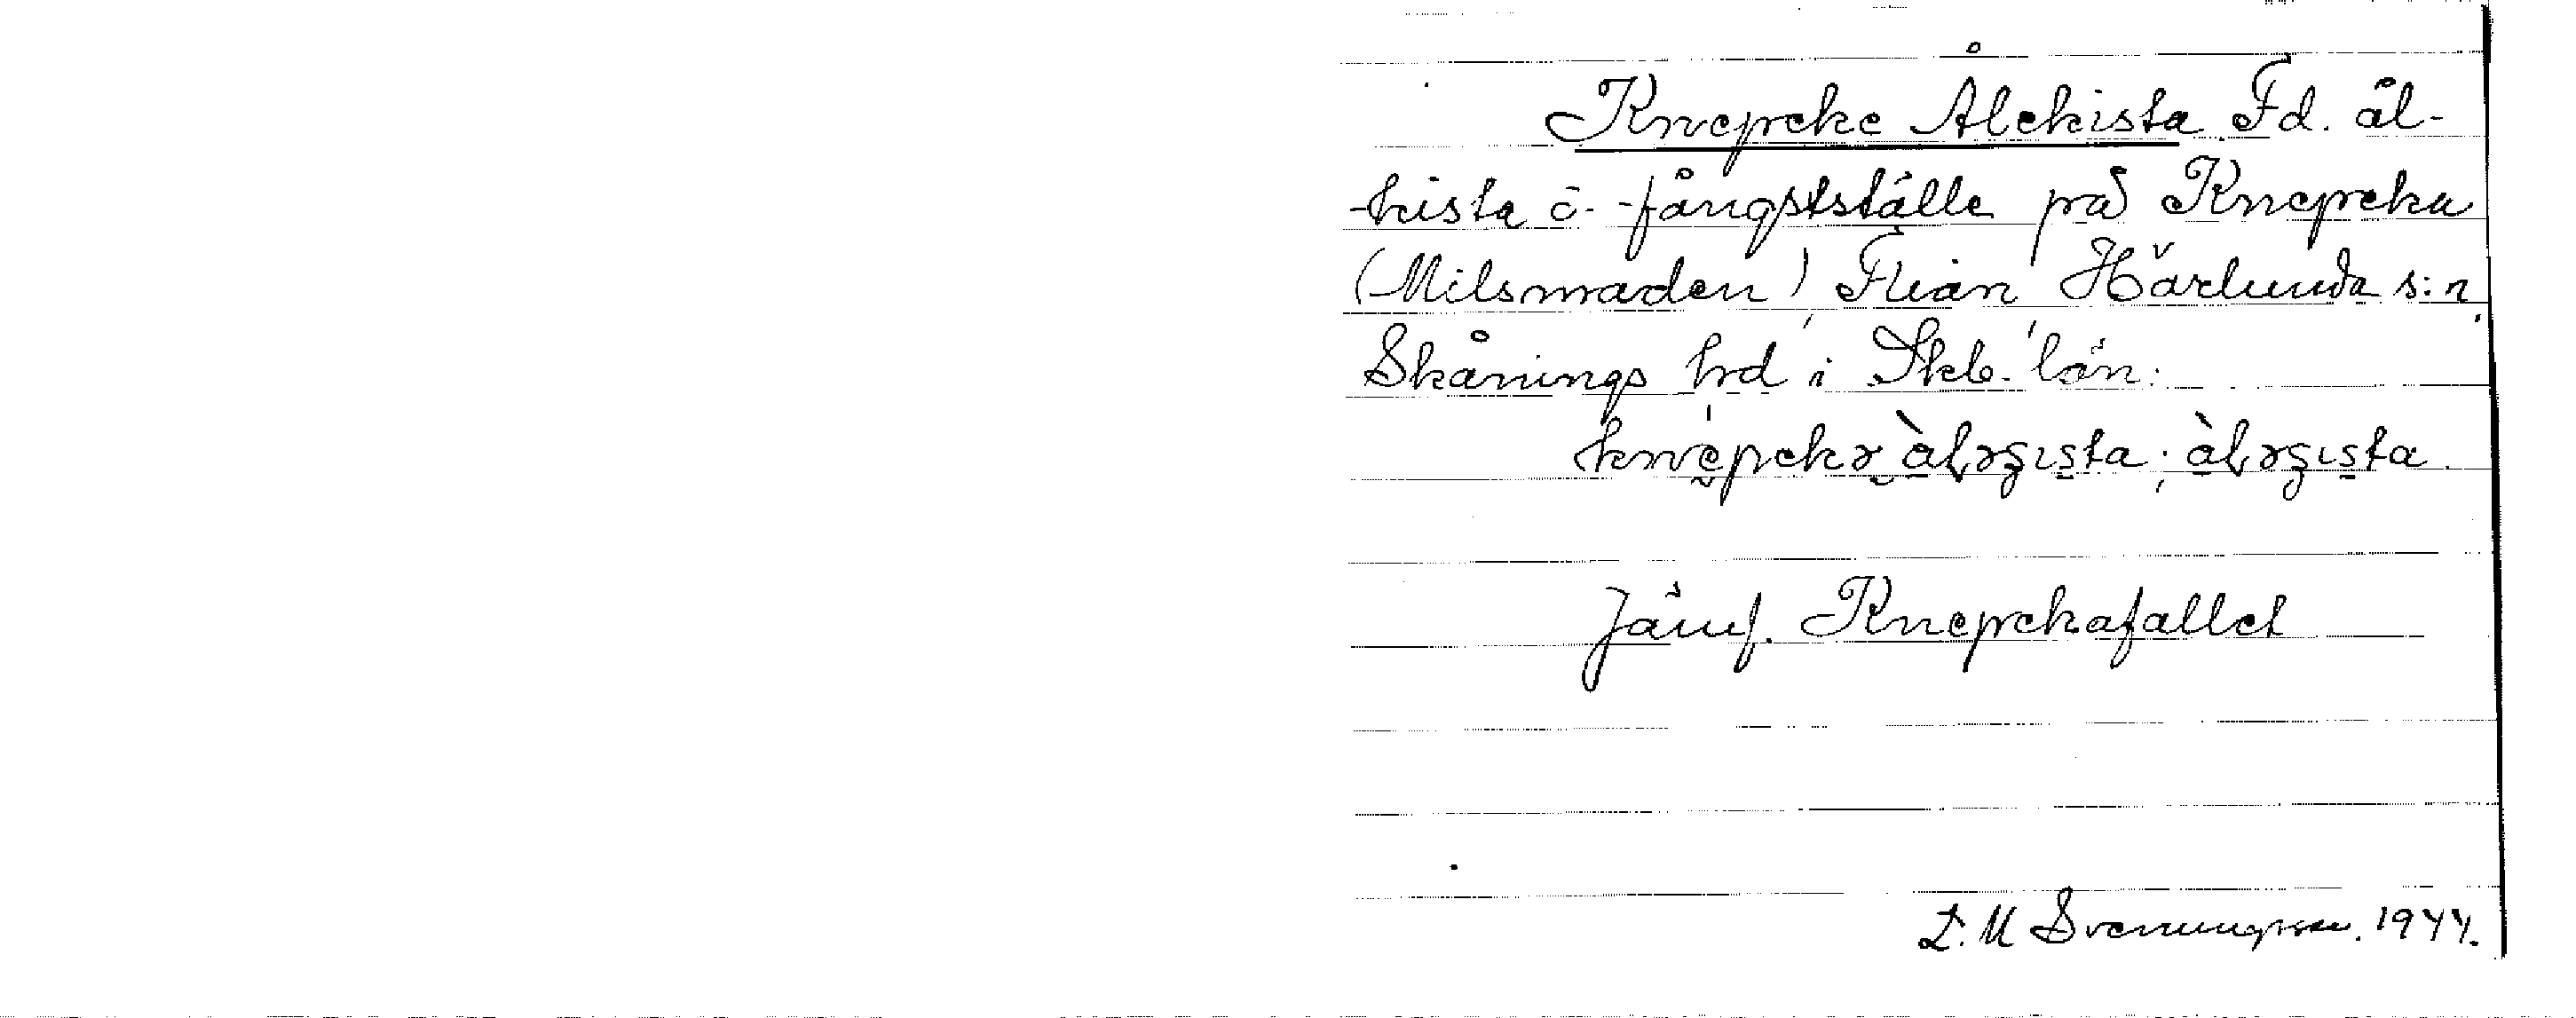 Knepeke Ålekista Fd. ål-
-kista o. -fångstställe på Knepeka
(Milsmaden) Flian Härlunda s:n,
Skånings hrd i Skb. län.
Jämf. Knepekafallet
L. M Svenungsson. 1944.